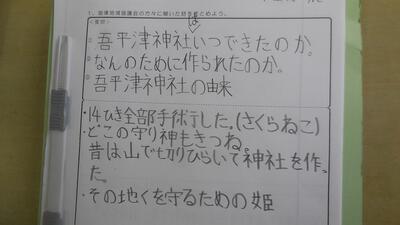 1. 吾平津地域協議会の方々に聞いた話をまとめよう。
<質問>
① 吾平津神社はいつできたのか。
② なんのために作られたのか。
③ 吾平津神社の由来
・14ひき全部手術した。(さくらねこ)
・どこの守り神もきつね。
昔は山で切りひらいて神社を作っ
た。
・その地くを守るための姫